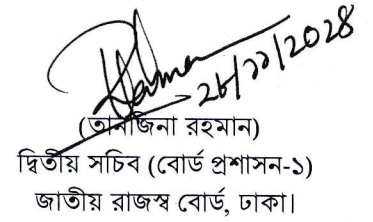 ২৮/১১/২০২৪
(তানজিনা রহমান)
দ্বিতীয় সচিব (বোর্ড প্রশাসন-১)
জাতীয় রাজস্ব বোর্ড, ঢাকা।